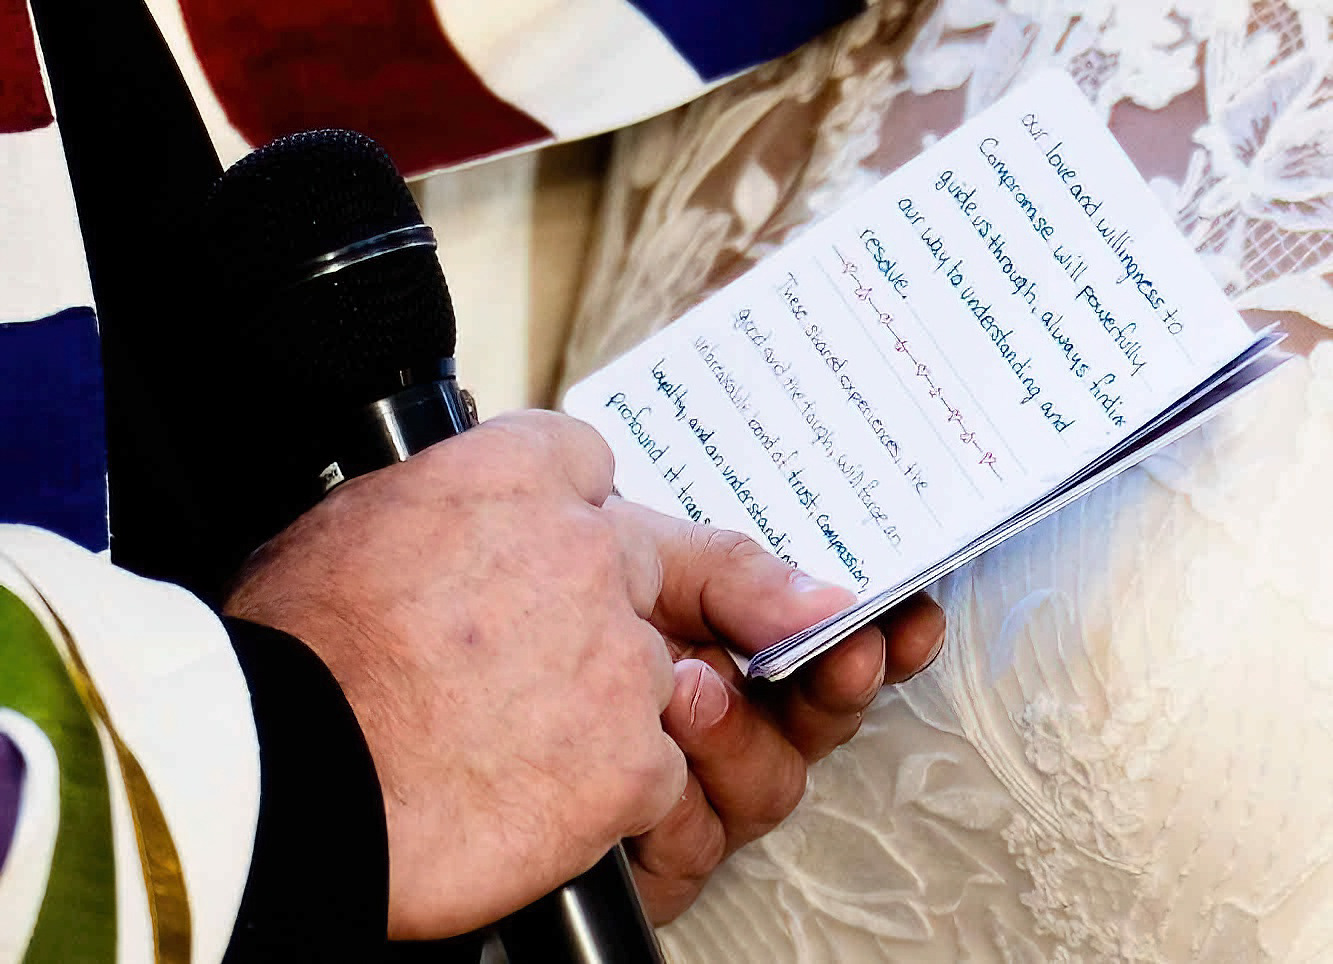 our love and willingness to
Compromise will powerfully
guide us through, always findin
our way to understanding and
resolve.
These shared experiences, the
good and the tough, will forge an
unbreakable bond of trust, compassion,
loyalty, and an understanding
profound it trans